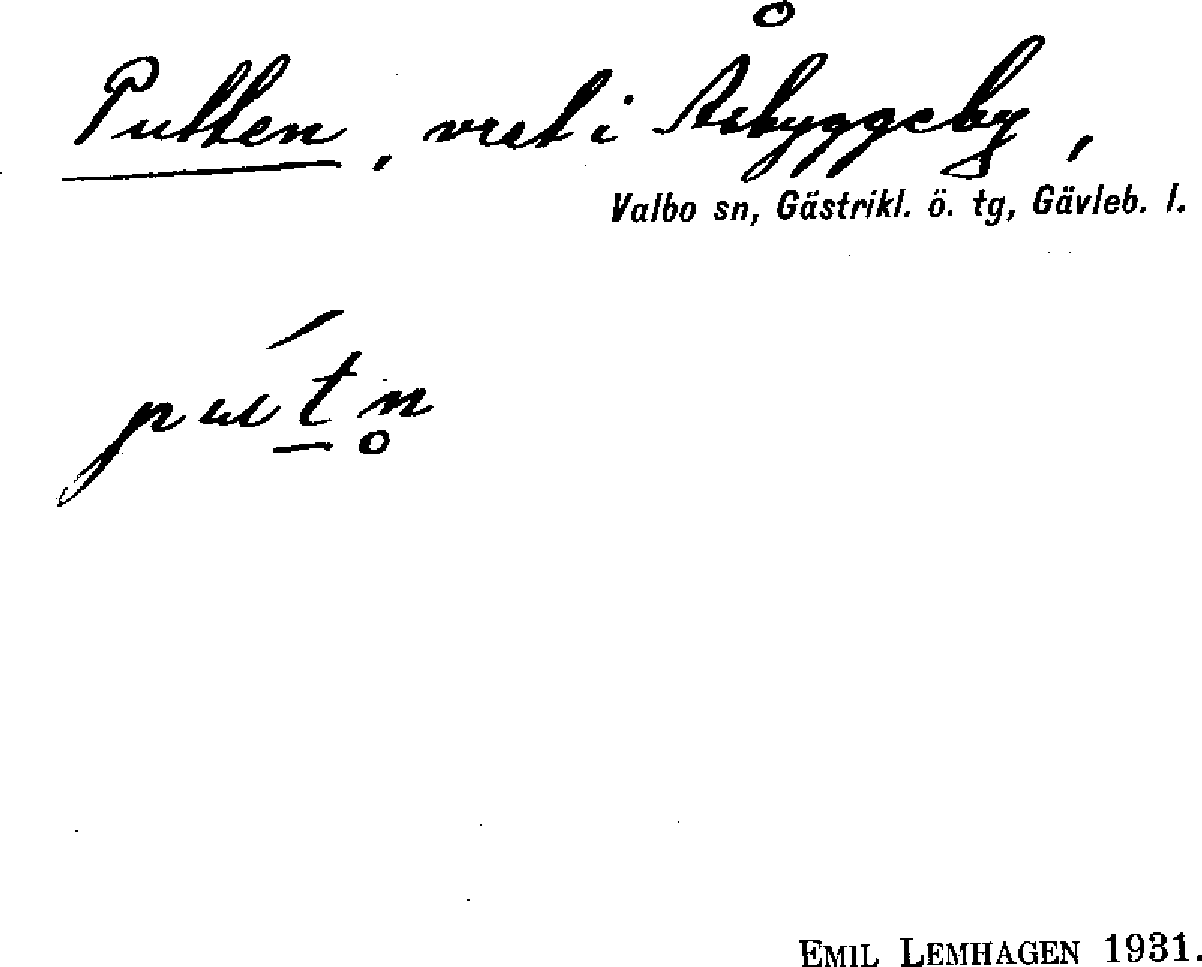 Putten, vret i Åsbyggeby,
Valbo sn, Gästrikl. ö. tg, Gävleb. l.
pút̲n̥
EMIL LEMHAGEN 1931.